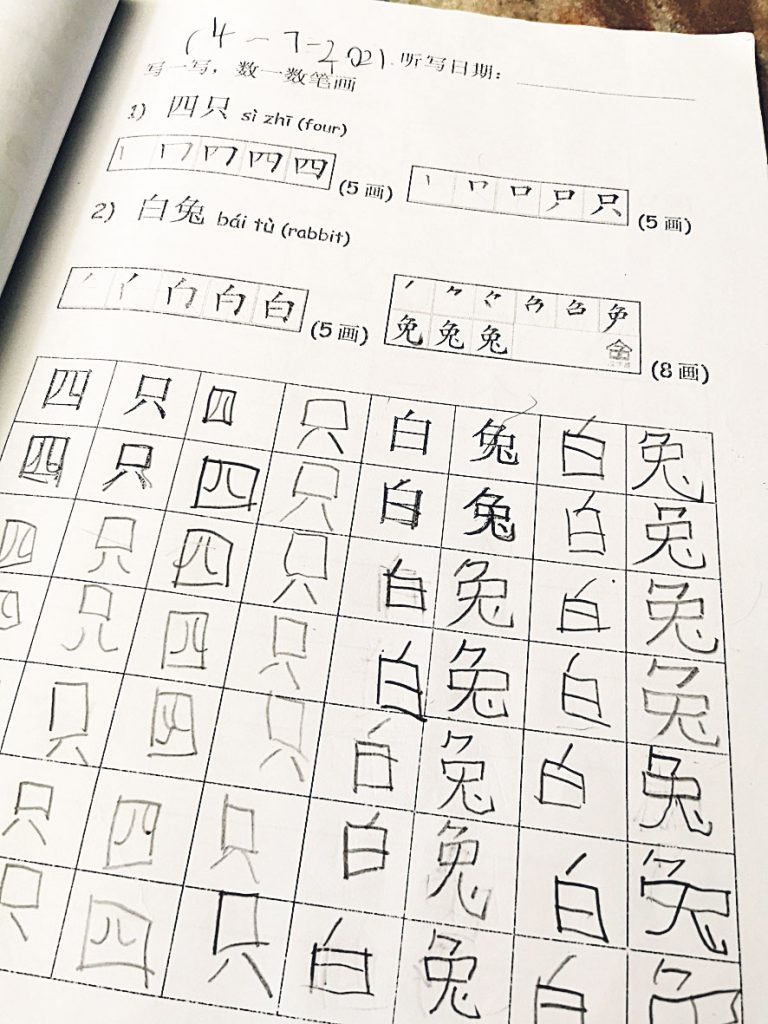 (4-7-2021 听写日期:
写一写，数一数笔画
1) 四只 sì zhī (four)
四 (5 画) 只 (5 画)
2) 白兔 bái tù (rabbit)
白 (5 画) 兔 (8 画)
四 只 四 只 白 兔 白 兔
四 只 四 只 白 兔 白 兔
四 只 四 只 白 兔 白 兔
四 只 四 只 白 兔 白 兔
只 四 只 白 兔 白 兔
只 四 只 白 兔 白 兔
只 四 只 白 兔 白 兔